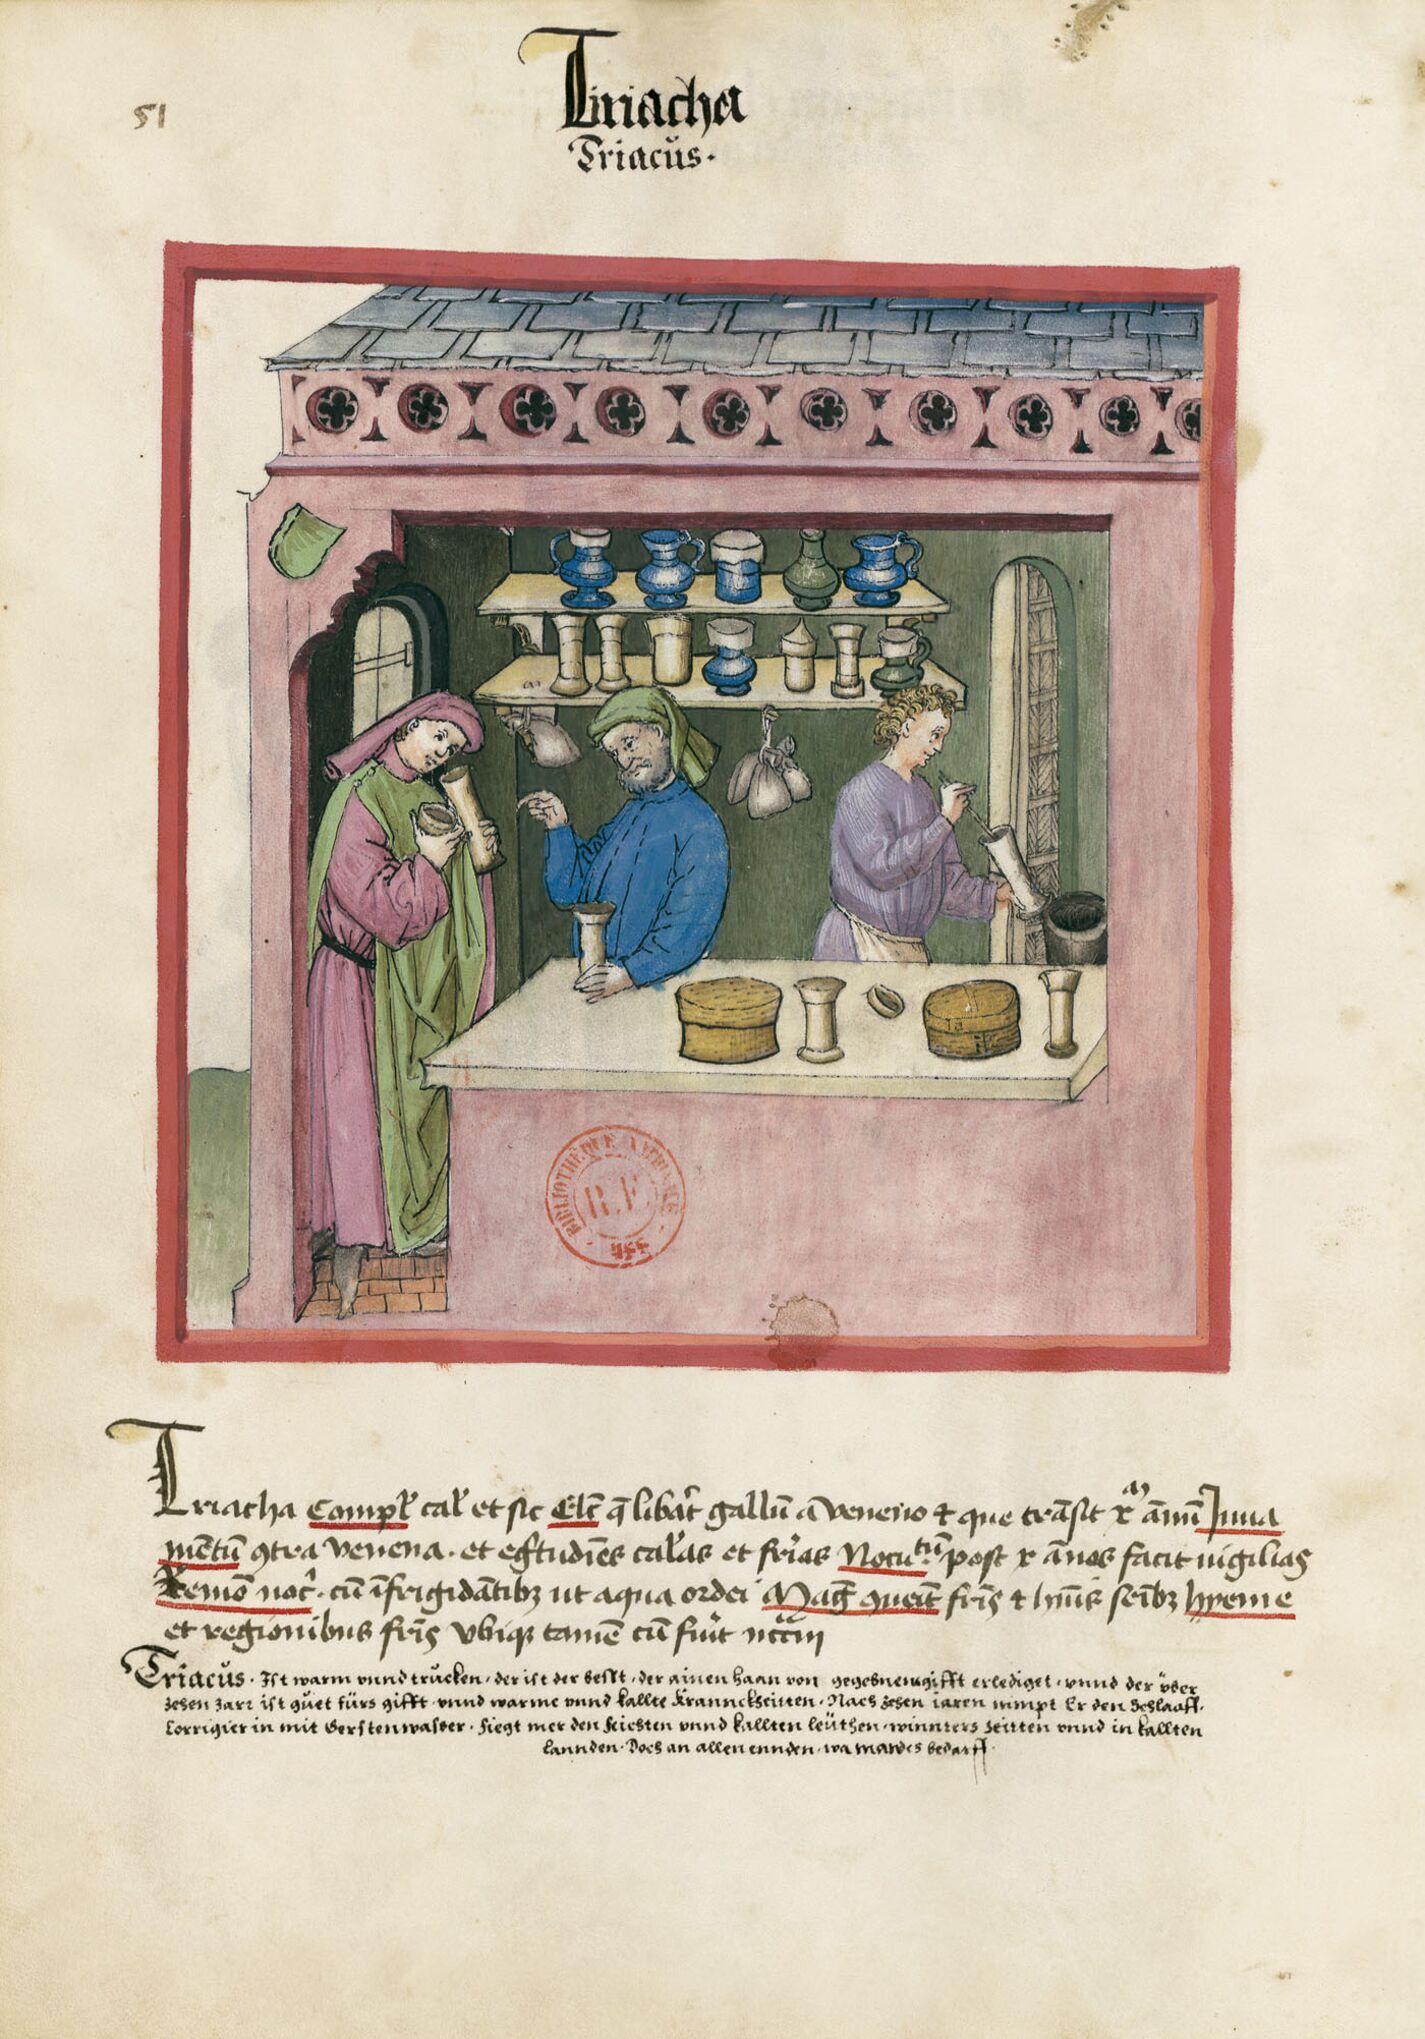 51
Tiriacha
Triacŭs.
Tyriacha Compl̄ cal̄ et sic Elc̄ q̄ libat̄ gallū a veneno et que trāsit xᵃᵐ ānū Juua
mētū ɔtra venena. et egͥtudīes cal̄as et fri̅as Nocutū post x ānos facit uigilias
Remō noc̄. cū īfrigidātibꝫ ut aqua ordei Mag̅ ɔueīt fri̅s et hūīs senibꝫ hyeme
et regionibus fri̅s Vbiqꝫ tamē cū fuīt nc̄c̄ia
Triacŭs. Ist warm vnnd trucken. der ist der besst. der ainen haan von gegebnem gifft erlediget. vnnd der vͤber
zehen Jarr ist guet fürs gifft. vnnd warme vnnd kallte Krannckheitten. Nach zehen iaren nimpt Er den Schlaaff.
Corrigier in mit Gerstenwasser. fiegt mer den feichten vnnd kallten leüthen. winnters zeitten vnnd in kallten
lannden. Doch an allen ennden. wa man es bedarff.
BIBLIOTHÈQUE NATIONALE
R.F.
MSS